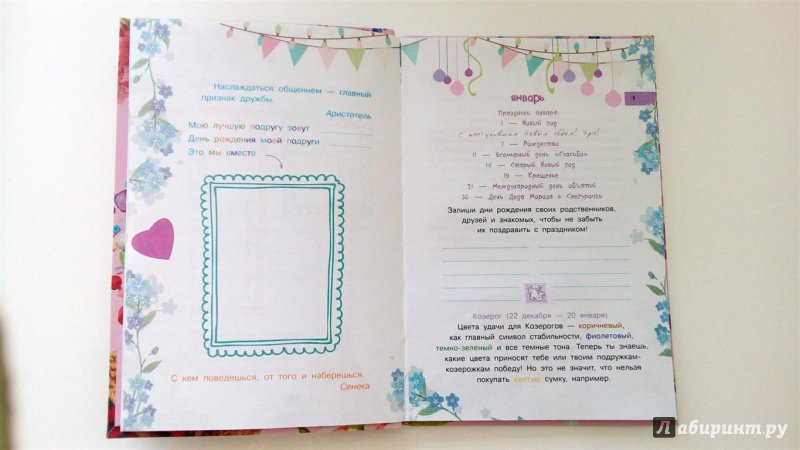 Наслаждаться общением — главный
признак дружбы.
Аристотель
Мою лучшую подругу зовут
День рождения моей подруги
Это мы вместе
С кем поведешься, от того и наберешься.
Сенека
январь
Праздники января:
1 — Новый год
С наступившим Новым годом! Ура!
7 — Рождество
11 — Всемирный день «Спасибо»
14 — Старый Новый год
19 — Крещение
21 — Международный день объятий
30 — День Деда Мороза и Снегурочки
Запиши дни рождения своих родственников,
друзей и знакомых, чтобы не забыть
их поздравить с праздником!
Козерог (22 декабря — 20 января)
Цвета удачи для Козерогов — коричневый,
как главный символ стабильности, фиолетовый,
темно-зеленый и все темные тона. Теперь ты знаешь,
какие цвета приносят тебе или твоим подружкам-
козерожкам победу! Но это не значит, что нельзя
покупать желтую сумку, например.
Лабиринт.ру